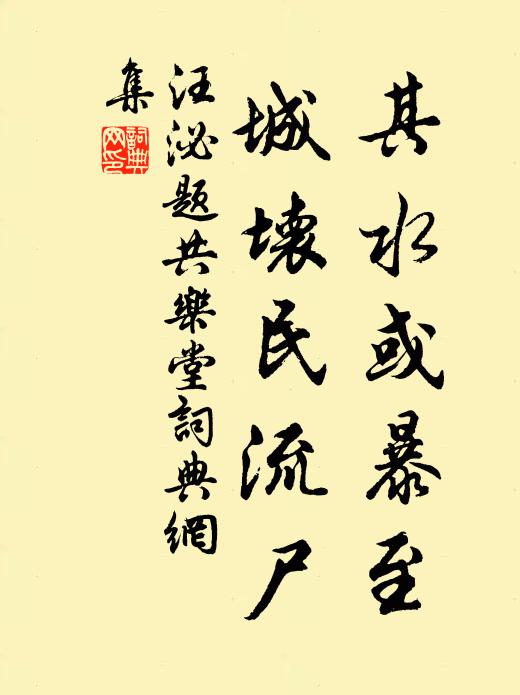 其水或暴至
城壞民流尸
汪泌題共樂堂詞典網
集
詞典網印